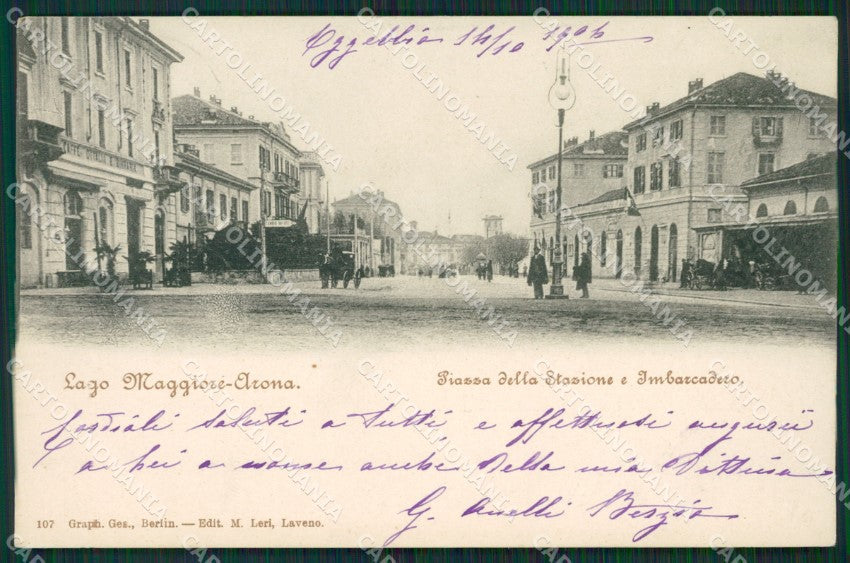 Oggebbio 14/10 1904
Lago Maggiore-Arona.
Piazza della Stazione e Imbarcadero.
Cordiali saluti a tutti, e affettuosi augurii
a Lei a nome anche della mia
G. Anelli Berzio
107 Graph. Ges., Berlin. — Edit. M. Leri, Laveno.
CARTOLINOMANIA